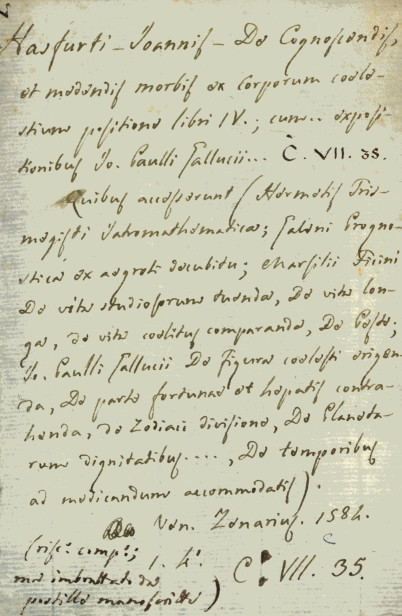 Hasfurti - Joannis - De Cognoscendis,
et medendis morbis ex corporum coele-
stium positione libri IV.; cum.. exposi-
tionibus Jo. Paulli Gallucii... C. VII. 35.
Quibus accesserunt (Hermetis Tris-
megisti Jatromathematica; Galeni Progno-
stica ex aegroti decubitu; Marsilii Ficini
De vita studiosorum tuenda, De vita lon-
ga, de vita coelitus comparanda, De Peste;
Jo. Paulli Gallucii De Figura coelesti erigen-
da, De parte fortunae et hepatis contra-
henda, de Zodiaci divisione, De Planeta-
rum dignitatibus...., De temporibus
ad medicandum accommodatis).
Ven. Zenarius. 1584.
(rist. comp.;
ma imbrattato da 1. 4. C. VII. 35.
postille manoscritte)